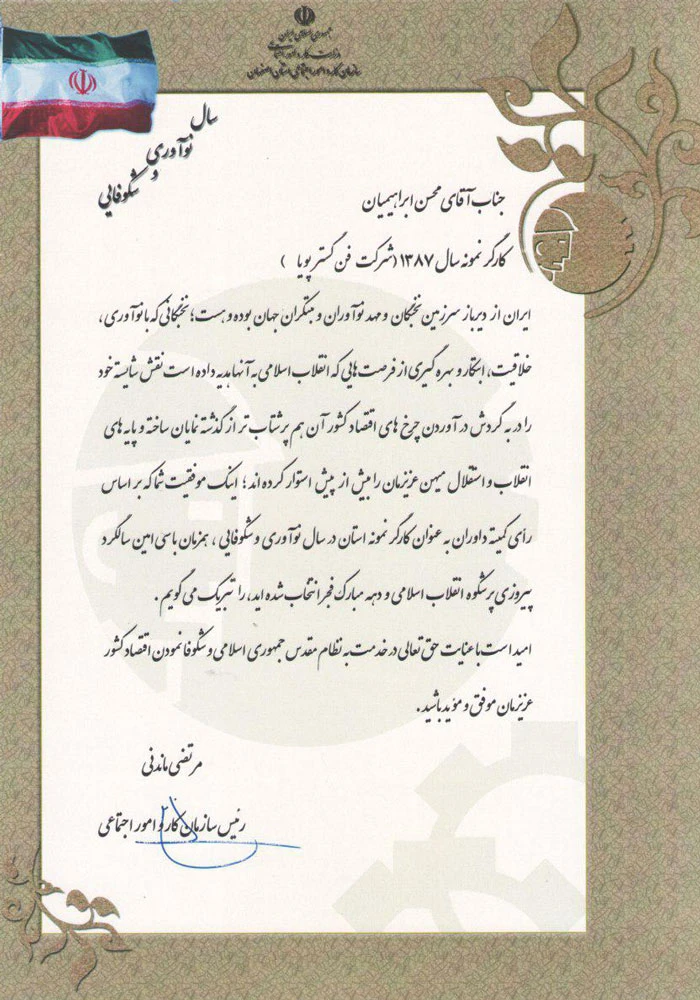 جمهوری اسلامی ایران
وزارت کار و امور اجتماعی
سازمان کار و امور اجتماعی استان اصفهان
سال
نوآوری
و
شکوفایی
جناب آقای محسن ابراهیمیان
کارگر نمونه سال ۱۳۸۷ (شرکت فن گستر پویا )
ایران از دیرباز سرزمین نخبگان و مهد نوآوران و مبتکران جهان بوده و هست؛ نخبگانی که با نوآوری،
خلاقیت، ابتکار و بهره گیری از فرصت هایی که انقلاب اسلامی به آنها هدیه داده است نقش شایسته خود
را در به گردش در آوردن چرخ های اقتصاد کشور آن هم پرشتاب تر از گذشته نمایان ساخته و پایه های
انقلاب و استقلال میهن عزیزمان را بیش از پیش استوار کرده اند؛ اینک موفقیت شما که بر اساس
رأی کمیته داوران به عنوان کارگر نمونه استان در سال نوآوری و شکوفایی، همزمان با سی امین سالگرد
پیروزی پرشکوه انقلاب اسلامی و دهه مبارک فجر انتخاب شده اید، را تبریک می گویم.
امید است با عنایت حق تعالی در خدمت به نظام مقدس جمهوری اسلامی و شکوفا نمودن اقتصاد کشور
عزیزمان موفق و مؤید باشید.
مرتضی ماندنی
رئیس سازمان کار و امور اجتماعی